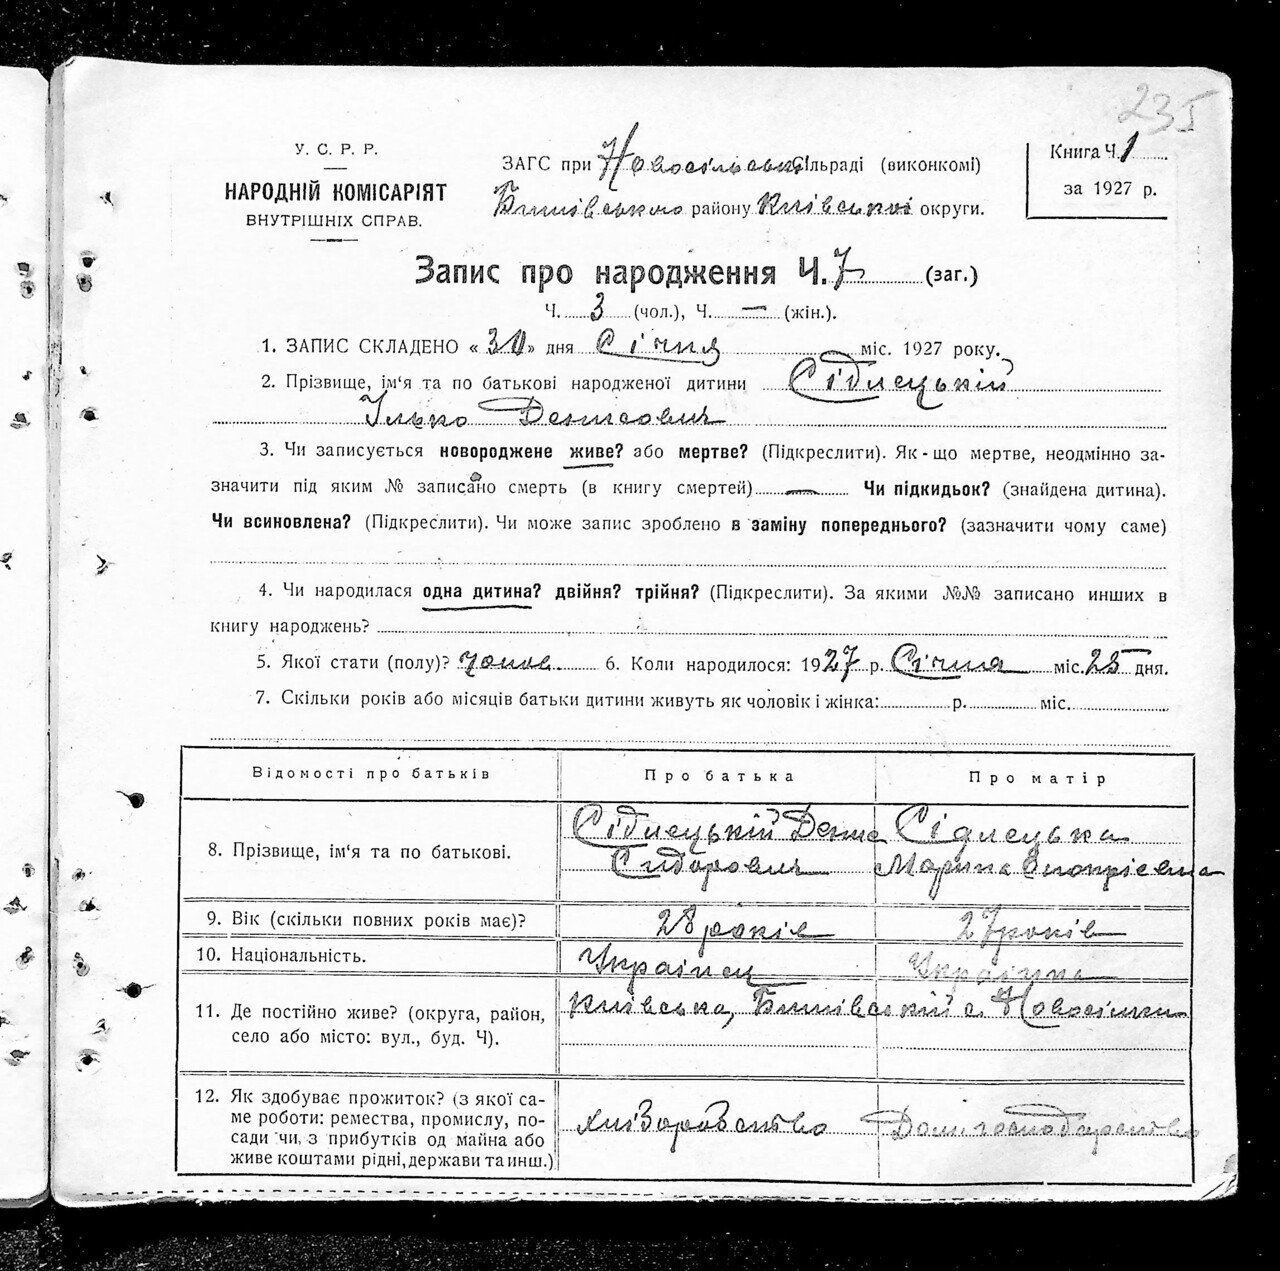 235
У. С. Р. Р.
НАРОДНІЙ КОМІСАРІЯТ
ВНУТРІШНІХ СПРАВ.
ЗАГС при Новосільській сільраді (виконкомі)
Бишівського району Київської округи.
Книга Ч. 1
за 1927 р.
Запис про народження Ч. 7 (заг.)
Ч. 3 (чол.), Ч. — (жін.).
1. ЗАПИС СКЛАДЕНО « 30 » дня Січня міс. 1927 року.
2. Прізвище, ім'я та по батькові народженої дитини Сідлецькій
Ілько Денисович
3. Чи записується новороджене живе? або мертве? (Підкреслити). Як-що мертве, неодмінно за-
значити під яким № записано смерть (в книгу смертей) — Чи підкидьок? (знайдена дитина).
Чи всиновлена? (Підкреслити). Чи може запис зроблено в заміну попереднього? (зазначити чому саме)
4. Чи народилася одна дитина? двійня? трійня? (Підкреслити). За якими №№ записано инших в
книгу народжень?
5. Якої стати (полу)? 6. Коли народилося: 1927 р. Січня міс. 25 дня.
7. Скільки років або місяців батьки дитини живуть як чоловік і жінка: р. міс.
Відомості про батьків Про батька Про матір
8. Прізвище, ім'я та по батькові. Сідлецькій Денис Сидорович Сідлецька Марина Онопріевна
9. Вік (скільки повних років має)? 28 років 27 років
10. Національність. Українец Українка
11. Де постійно живе? (округа, район, Київська, Бишівський с. Новосілки
село або місто: вул., буд. Ч).
12. Як здобуває прожиток? (з якої са-
ме роботи: ремества, промислу, по-
сади чи, з прибутків од майна або
живе коштами рідні, держави та инш.) хліборобство Домогосподарство